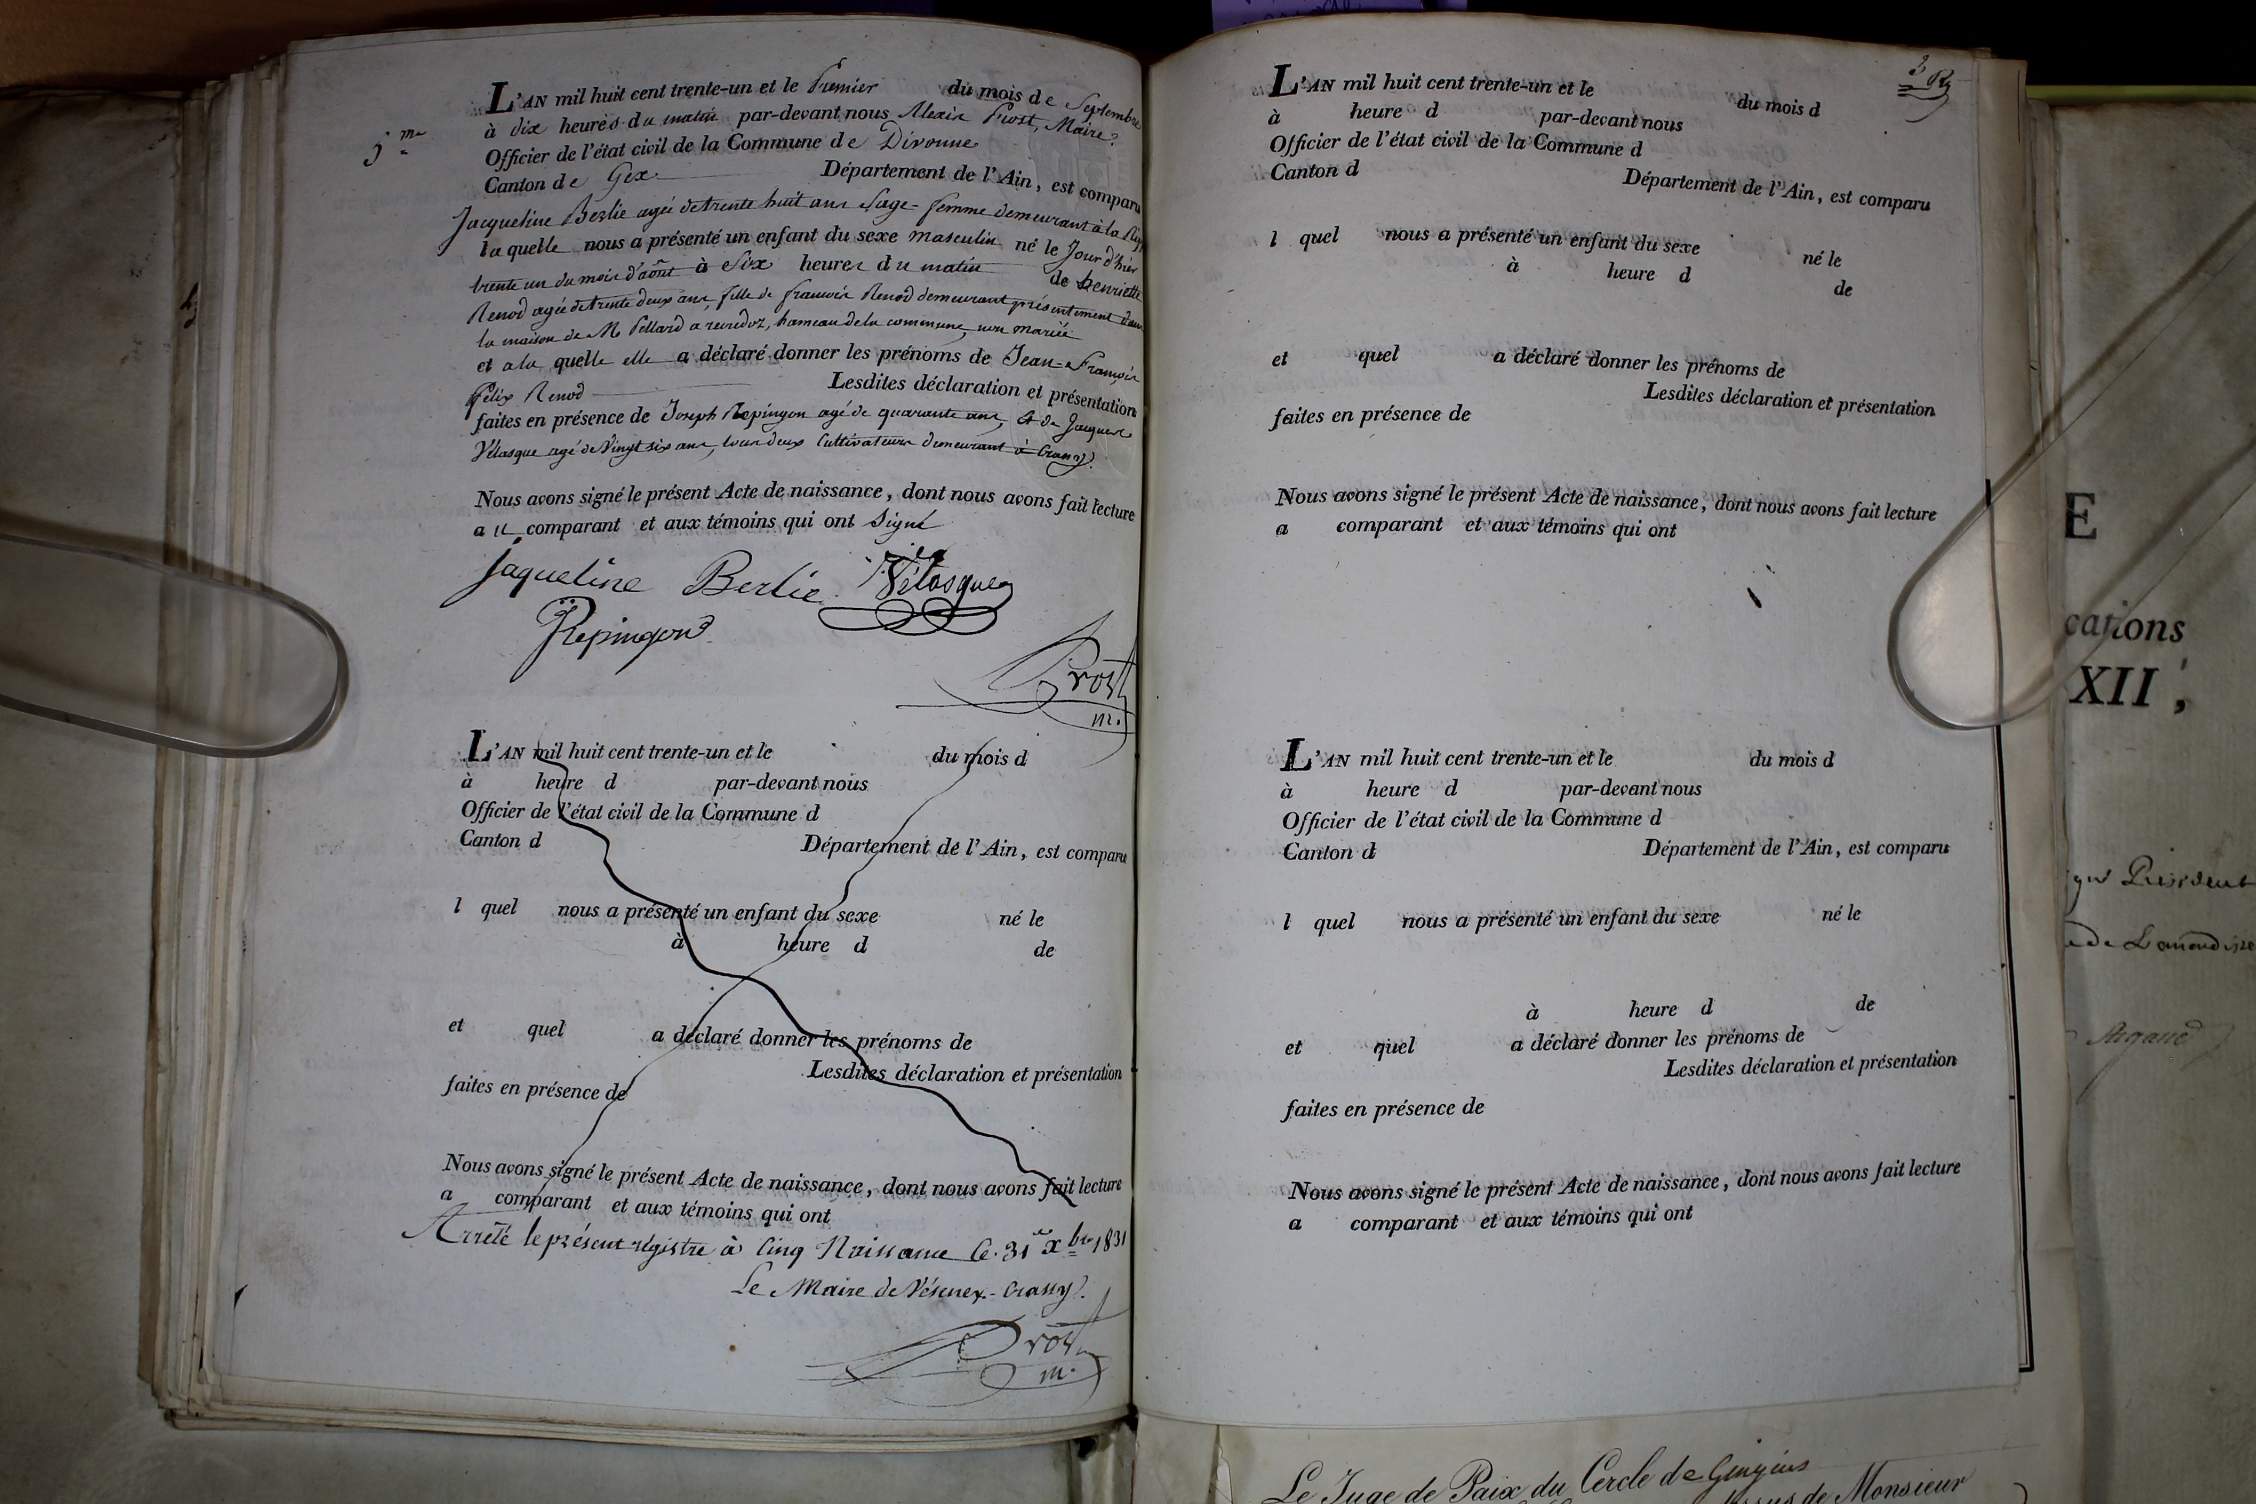 5.me
L'AN mil huit cent trente-un et le Premier du mois de Septembre
à dix heures du matin par-devant nous Alexis Prost, Maire
Officier de l'état civil de la Commune de Divonne
Canton de Gex Département de l'Ain, est comparu
Jacqueline Berlie agée de trente huit ans Sage-femme demeurant à la
la quelle nous a présenté un enfant du sexe masculin né le Jour d'hier
trente un du mois d'août à Six heures du matin de henriette
Renod agée de trente deux ans, fille de françois Renod demeurant présentement dans
la maison de M Pellard a hameau de la commune, non mariée
et a la quelle elle a déclaré donner les prénoms de Jean-François
Félix Renod Lesdites déclaration et présentation
faites en présence de Joseph Repingon agé de quarante ans, et de Jacques
Vélasque agé de Vingt six ans, tous deux Cultivateurs demeurant à Crassy.
Nous avons signé le présent Acte de naissance, dont nous avons fait lecture
a u comparant et aux témoins qui ont Signé
Jaqueline Berlie Vélasque
Repingon
Prost
m.
L'AN mil huit cent trente-un et le du mois d
à heure d par-devant nous
Officier de l'état civil de la Commune d
Canton d Département de l'Ain, est comparu
l quel nous a présenté un enfant du sexe né le
à heure d de
et quel a déclaré donner les prénoms de
Lesdites déclaration et présentation
faites en présence de
Nous avons signé le présent Acte de naissance, dont nous avons fait lecture
a comparant et aux témoins qui ont
Arrêté le présent régistre à Cinq Naissance Ce. 31 Xbre 1831
Le Maire de Vésenex-Crassy.
Prost
m.
3
L'AN mil huit cent trente-un et le du mois d
à heure d par-devant nous
Officier de l'état civil de la Commune d
Canton d Département de l'Ain, est comparu
l quel nous a présenté un enfant du sexe né le
à heure d de
et quel a déclaré donner les prénoms de
Lesdites déclaration et présentation
faites en présence de
Nous avons signé le présent Acte de naissance, dont nous avons fait lecture
a comparant et aux témoins qui ont
L'AN mil huit cent trente-un et le du mois d
à heure d par-devant nous
Officier de l'état civil de la Commune d
Canton d Département de l'Ain, est comparu
l quel nous a présenté un enfant du sexe né le
à heure d de
et quel a déclaré donner les prénoms de
Lesdites déclaration et présentation
faites en présence de
Nous avons signé le présent Acte de naissance, dont nous avons fait lecture
a comparant et aux témoins qui ont
E
cations
XII,
Président
Le Juge de Paix du Cercle de Gingins
de Monsieur